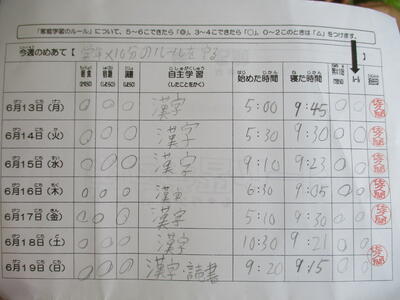 「家庭学習のルール」について、5〜6こできたら「◎」、3〜4こできたら「○」、0〜2このときは「△」をつけます。
今週のめあて【 学年×10分のルールを守る
自主学習 始めた時間 寝た時間
(したことをかく)
6月13日(月) ○ ○ ○ 漢字 5:00 9:45 ○ ○
6月14日(火) ○ ○ ○ 漢字 5:30 9:30 ○ ○
6月15日(水) ○ ○ ○ 漢字 9:10 9:23 ○ ○
6月16日(木) ○ ○ ○ 漢字 6:30 9:05 ○ ○
6月17日(金) ○ ○ ○ 漢字 5:10 9:30 ○ ○
6月18日(土) ○ ○ ○ 漢字 10:30 9:21 ○ ○
6月19日(日) ○ ○ ○ 漢字・読書 9:20 9:15 ○ ○